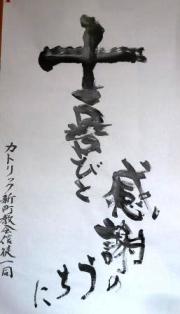 喜びと
感謝の
うちに
カトリック新町教会信徒一同